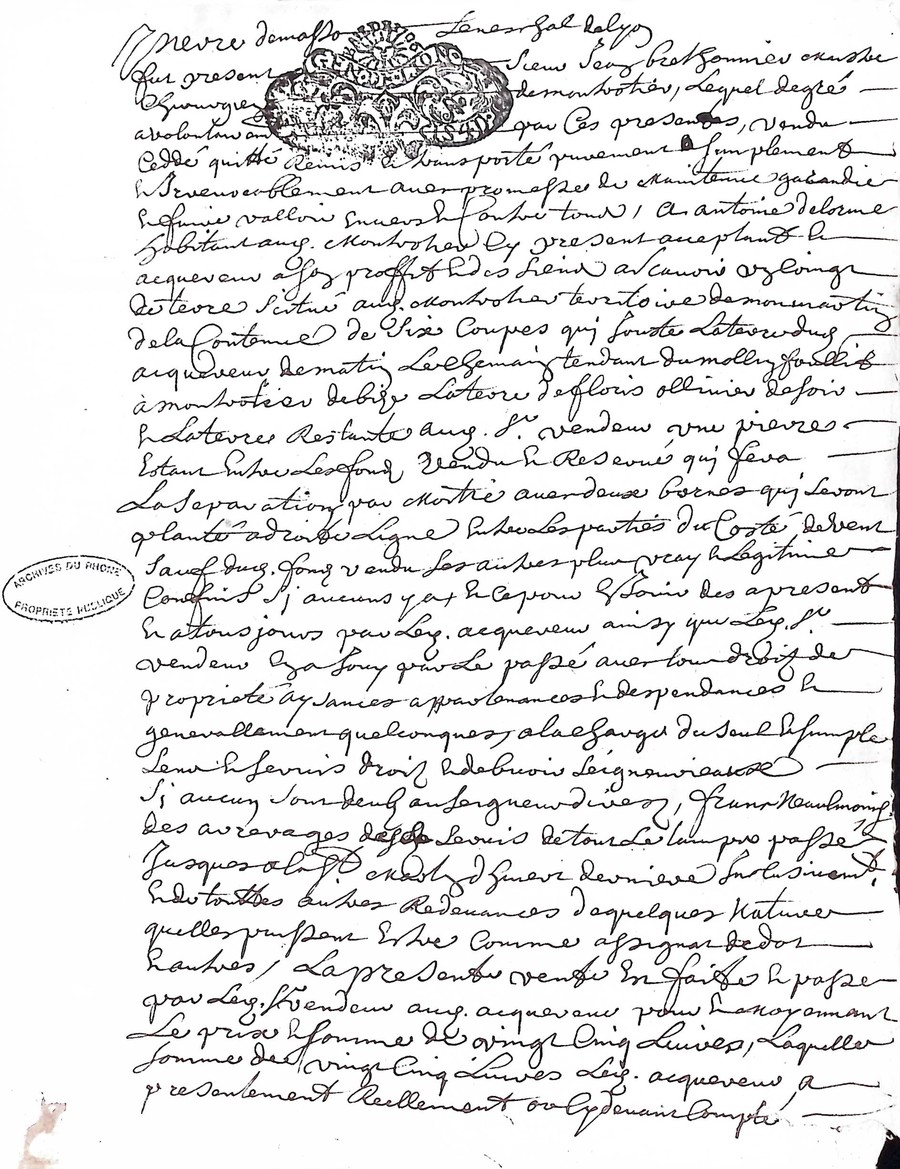 Pierre demasso Seneschal de Lyon
fut present Sieur Jean brethonnier Maistre
Chirurgien demontrotier, Lequel de gré
a volontair par Ces presentes, vendu
Ceddé quitté Remis & transporté purement & simplement
& Irrevocablement avec promesse de Maintenir garandir
& faire valloir Envers & Contre tous, A antoine delorme
habitant aud. Montrotier Cy present acceptant &
acquereur a son proffit & des siens a scavoir un loingt
de terre situé aud. Montrotier territoire de mon martin
de la Contenue de Six Coupes qui Jouste la terre dud.
acquereur de matin Le Chemin tendant du
à montrotier de bize La terre de floris ollinier de soir
& La terre Restante aud. Sr. vendeur une pierre
Estant Entre Les fond vendu & Reservé qui fera
La Separation par Moitié avec deux bornes qui seront
planté a droite Ligne Entre Les parties du Costé de vent
Sauf dud. fond vendu ses autres plus vray & Legitime
Confins si aucuns y a & Ce pour En Jouir des apresent
& a tousjours par Led. acquereur ainsy que Led. Sr.
vendeur En a Jouy par Le passé avec tous droits de
proprieté aysances appartenances & despendances &
generallement quelconques, a la charge du seul & simple
Cens & servis droit & debvoir Seigneuriaux
Si aucun sont deub au seigneur , franc Neaulmoins
des arrerages de Servis de tout Le temps passé
Jusques a la St. Martin d'hiver derniere Inclusivement,
& de touttes autres Redevances de quelques Nature
quelles puissent Estre Comme assignat de dot
& autres, La presente vente Est faite & passé
par Led. Sr. vendeur aud. acquereur pour & Moyennant
Le prix & somme de vingt Cinq Livres, Laquelle
somme de vingt Cinq Livres Led. acquereur a
presentement Reellement Compté
ARCHIVES DU RHONE
PROPRIETE PUBLIQUE